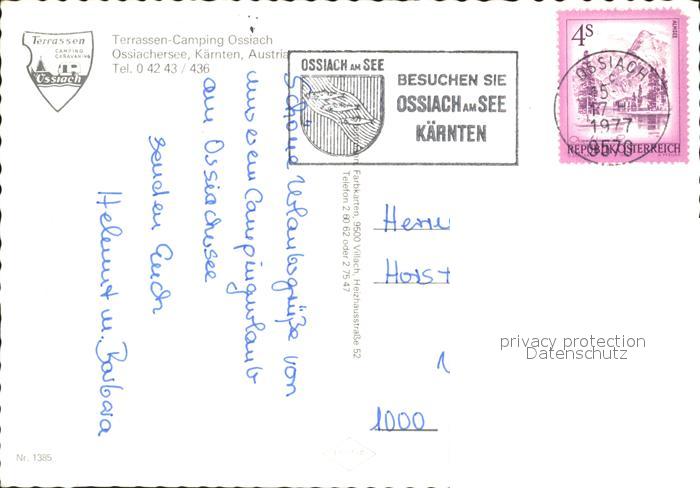 Terrassen
CAMPING
CARAVANING
Ossiach
Terrassen-Camping Ossiach
Ossiachersee, Kärnten, Austria
Tel. 0 42 43 / 436
OSSIACH AM SEE
BESUCHEN SIE
OSSIACH AM SEE
KÄRNTEN
4S
ALMSEE
REPUBLIK ÖSTERREICH
OSSIACH
1977
9570
Schöne Urlaubsgrüße von
unserem Campingurlaub
am Ossiachersee
senden Euch
Helmut u. Barbara
Farbkarten, 9500 Villach, Heizhausstraße 52
Telefon 2 60 62 oder 2 75 47
Herrn
Horst
1000
privacy protection
Datenschutz
Nr. 1385